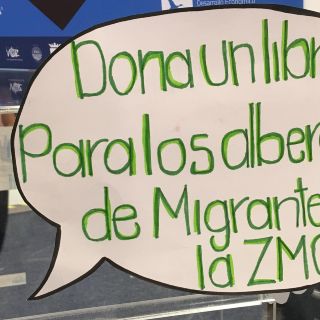 Desarrollo Económico
Dona un libr
Para los alber
de Migrante
la ZMG